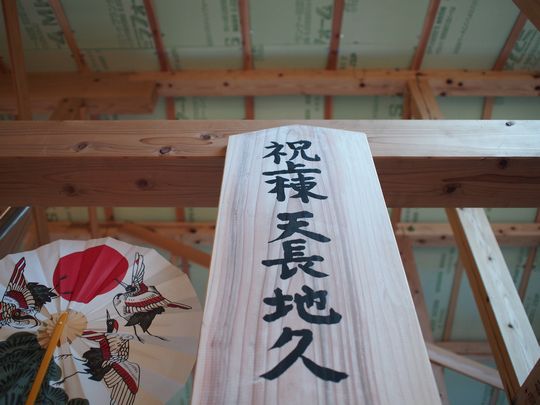 祝上棟 天長地久